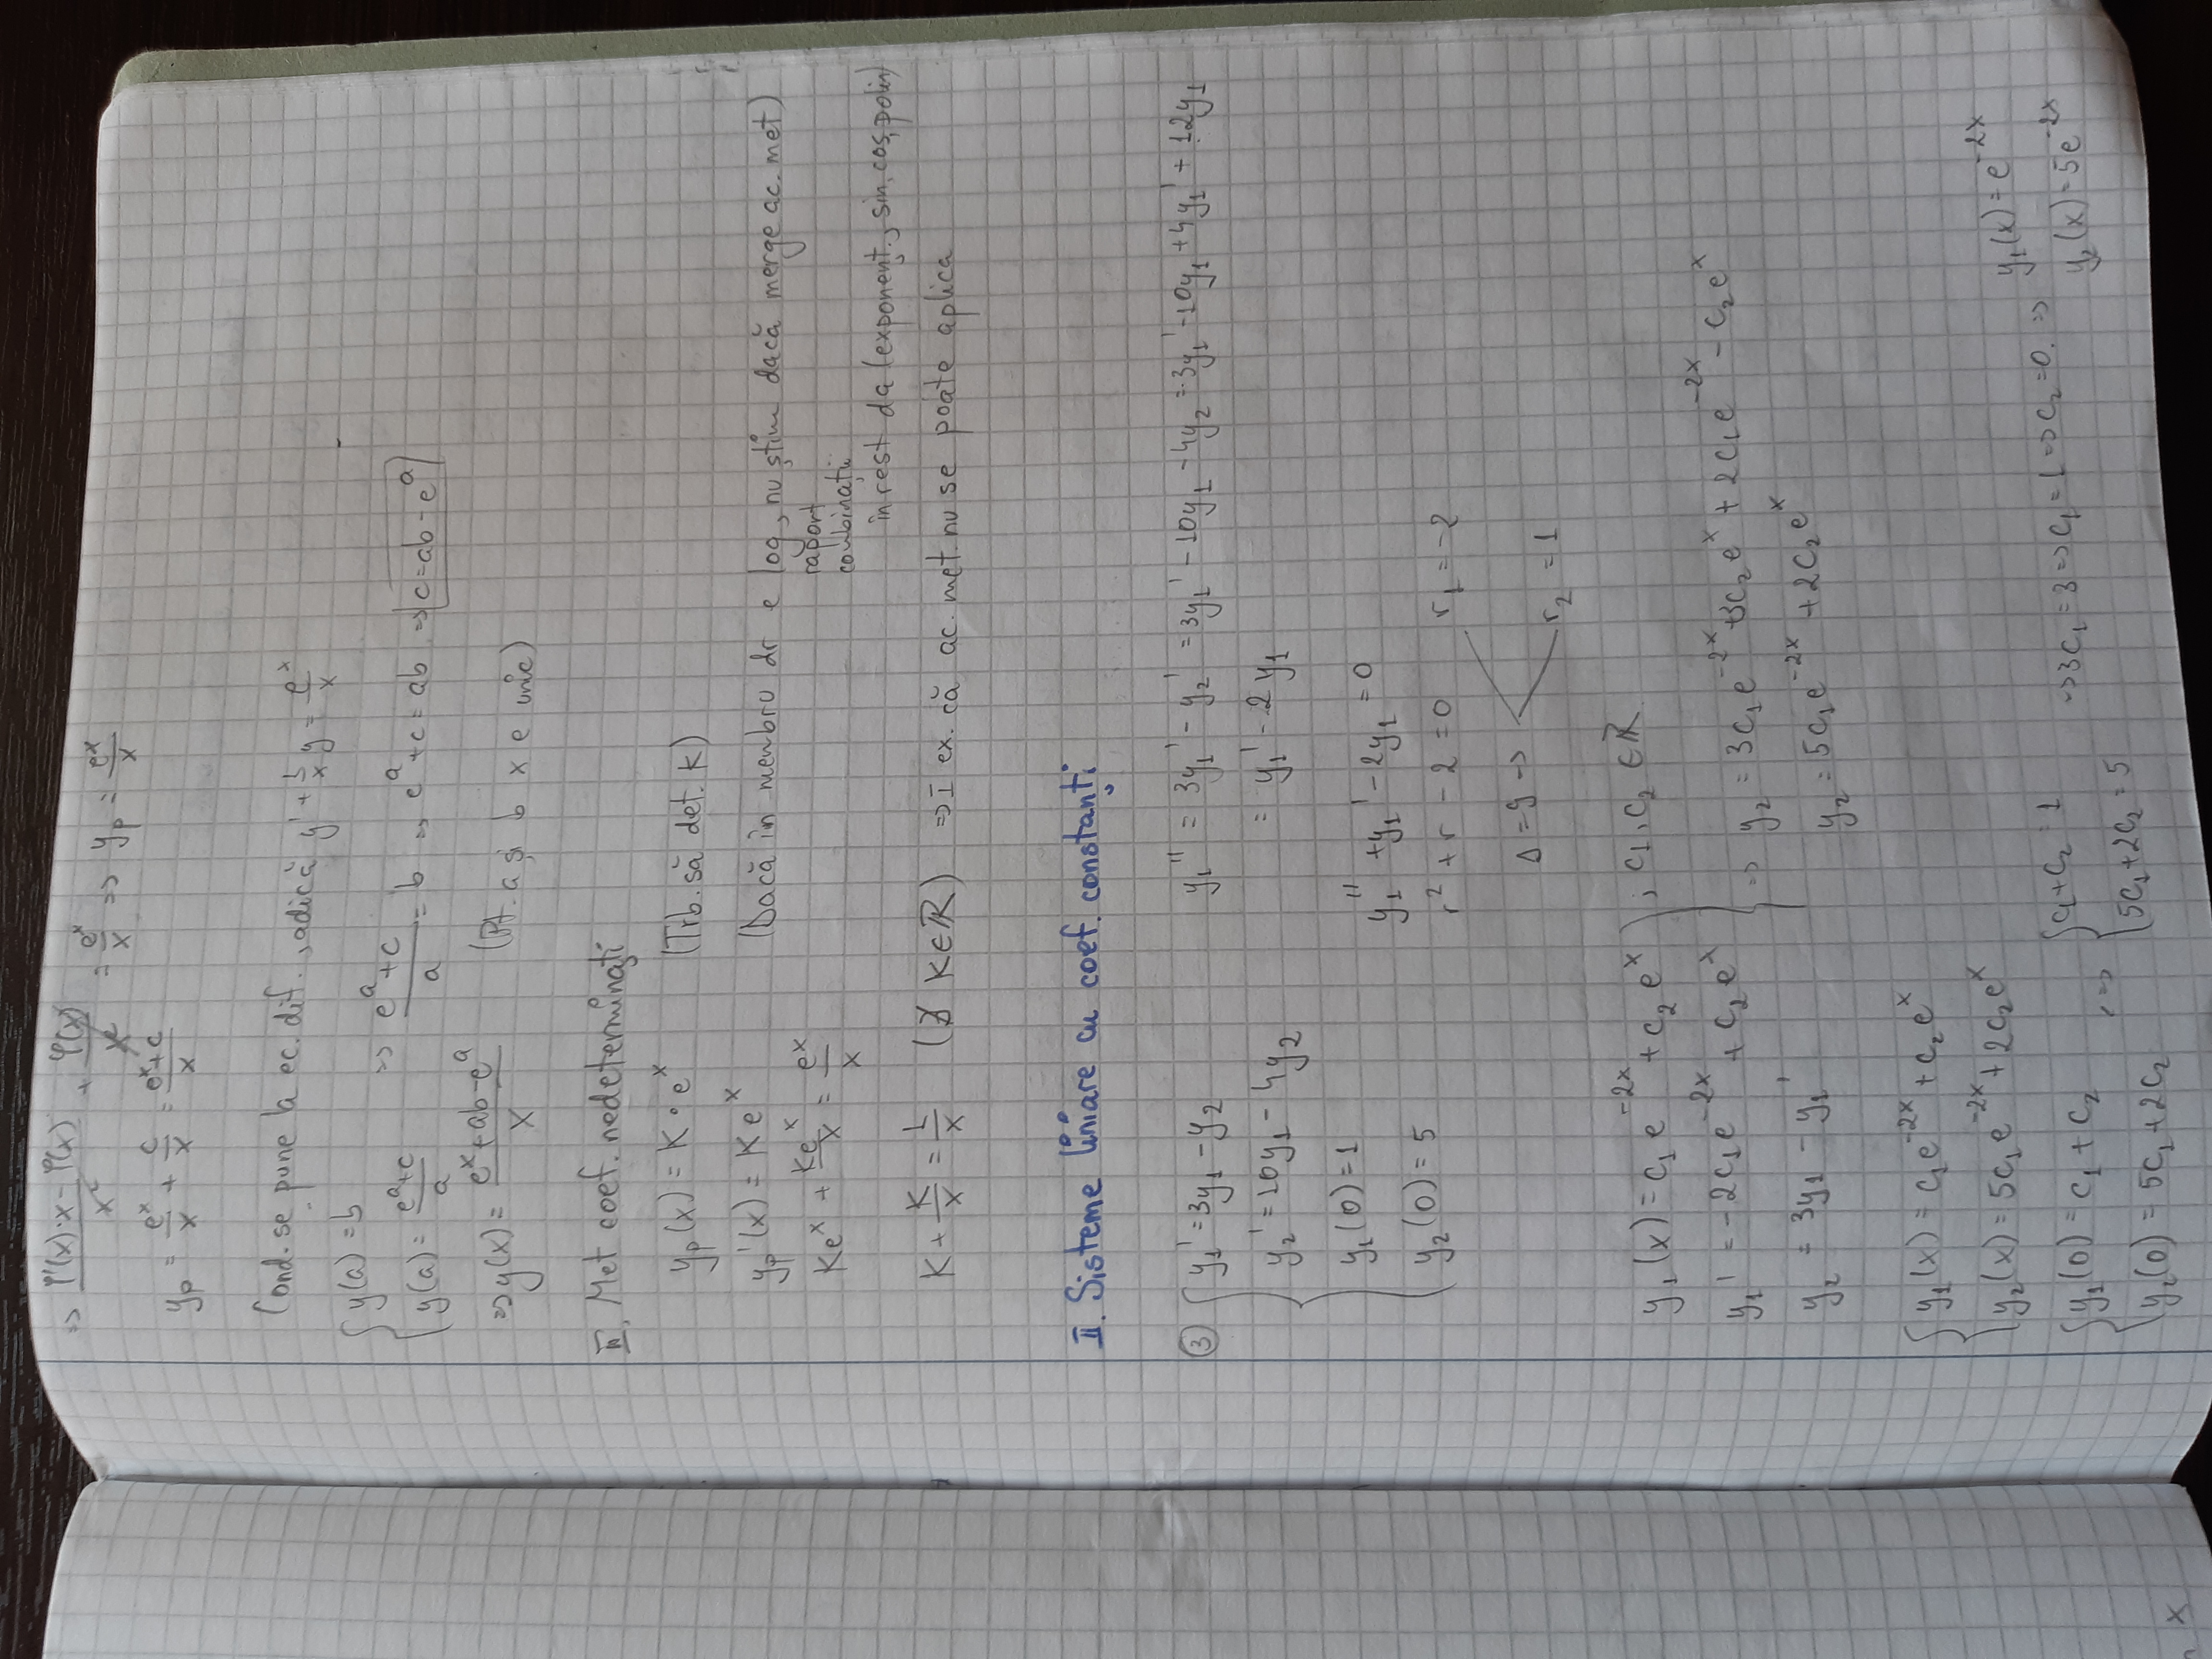 => (φ'(x)·x - φ(x))/x² + φ(x)/x² = e^x/x => y_p = e^x/x
y_p = e^x/x + c/x = (e^x+c)/x
Cond. se pune la ec. dif., adică y' + 1/x y = e^x/x
{ y(a) = b
y(a) = (e^a+c)/a => (e^a+c)/a = b => e^a+c = ab => c=ab-e^a
=> y(x) = (e^x+ab-e^a)/x (Pt. a și b x e unic)
II. Met coef. nedeterminați
y_p(x) = K · e^x (Trb. să det. K)
y_p'(x) = Ke^x (Dacă în membru dr e log, nu știm dacă merge ac. met)
raport
combinații
Ke^x + Ke^x/x = e^x/x
în rest da (exponenț., sin, cos, polin)
K + K/x = 1/x (∄ K∈ℝ) => I ex. că ac. met. nu se poate aplica
II. Sisteme liniare cu coef. constanți
③ { y₁' = 3y₁ - y₂ y₁'' = 3y₁' - y₂' = 3y₁' - 10y₁ - 4y₂ = 3y₁' - 10y₁ + 4y₁' + 12y₁
y₂' = 10y₁ - 4y₂ = y₁' - 2y₁
y₁(0) = 1
y₁'' + y₁' - 2y₁ = 0
y₂(0) = 5
r² + r - 2 = 0 r₁ = -2
Δ = 9 =>
r₂ = 1
y₁(x) = c₁e^-2x + c₂e^x ; c₁, c₂ ∈ ℝ
y₁' = -2c₁e^-2x + c₂e^x => y₂ = 3c₁e^-2x + 3c₂e^x + 2c₁e^-2x - c₂e^x
y₂ = 3y₁ - y₁' y₂ = 5c₁e^-2x + 2c₂e^x
{ y₁(x) = c₁e^-2x + c₂e^x
y₂(x) = 5c₁e^-2x + 2c₂e^x
{ y₁(0) = c₁ + c₂ <=> { c₁+c₂ = 1 => 3c₁ = 3 => c₁ = 1 => c₂ = 0. => y₁(x) = e^-2x
y₂(0) = 5c₁ + 2c₂ 5c₁+2c₂ = 5 y₂(x) = 5e^-2x
x